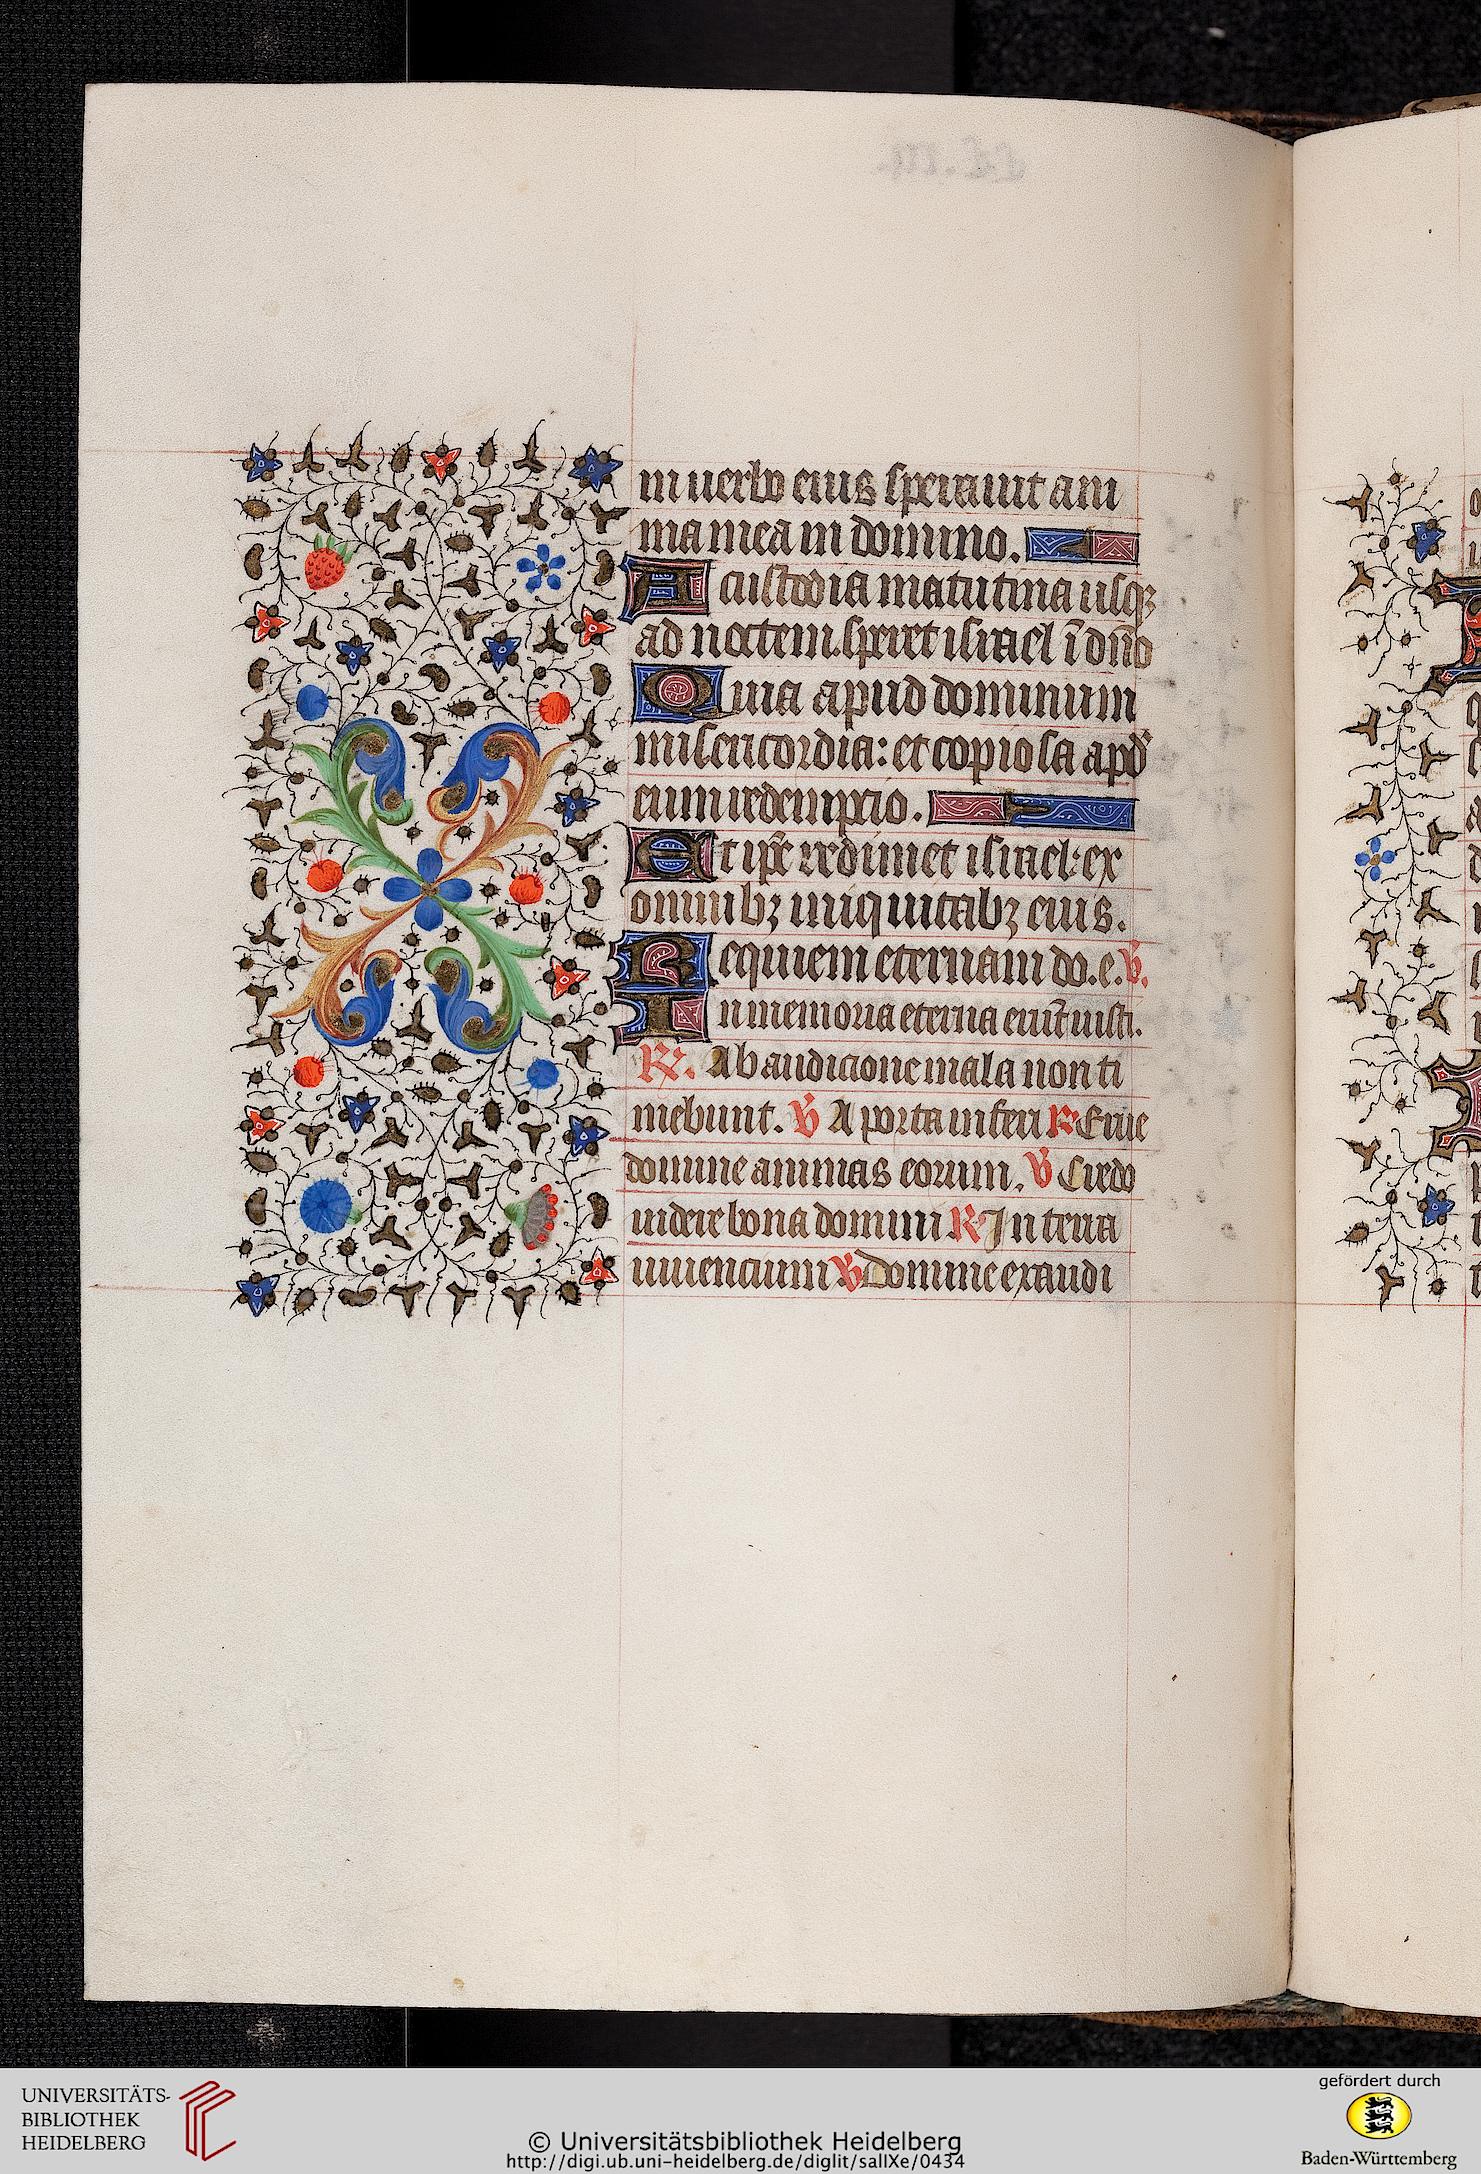 in verbo eius speravit ani
ma mea in domino.
A custodia matutina usqꝫ
ad noctem. speret israel ī dn̄o
Quia apud dominum
misericordia: et copiosa apd̕
eum redempcio.
Et ip̄e redimet israel: ex
omnibꝫ iniquitatibꝫ eius.
Requiem eternam do. e. ℣.
In memoria eterna erūt iusti.
℟. Ab audicione mala non ti
mebunt. ℣ A porta inferi ℟ Erue
domine animas eorum. ℣ Credo
videre bona domini ℟ In terra
viuencium ℣ Domine exaudi
UNIVERSITÄTS-
BIBLIOTHEK
HEIDELBERG
© Universitätsbibliothek Heidelberg
http://digi.ub.uni-heidelberg.de/diglit/salIXe/0434
gefördert durch
Baden-Württemberg